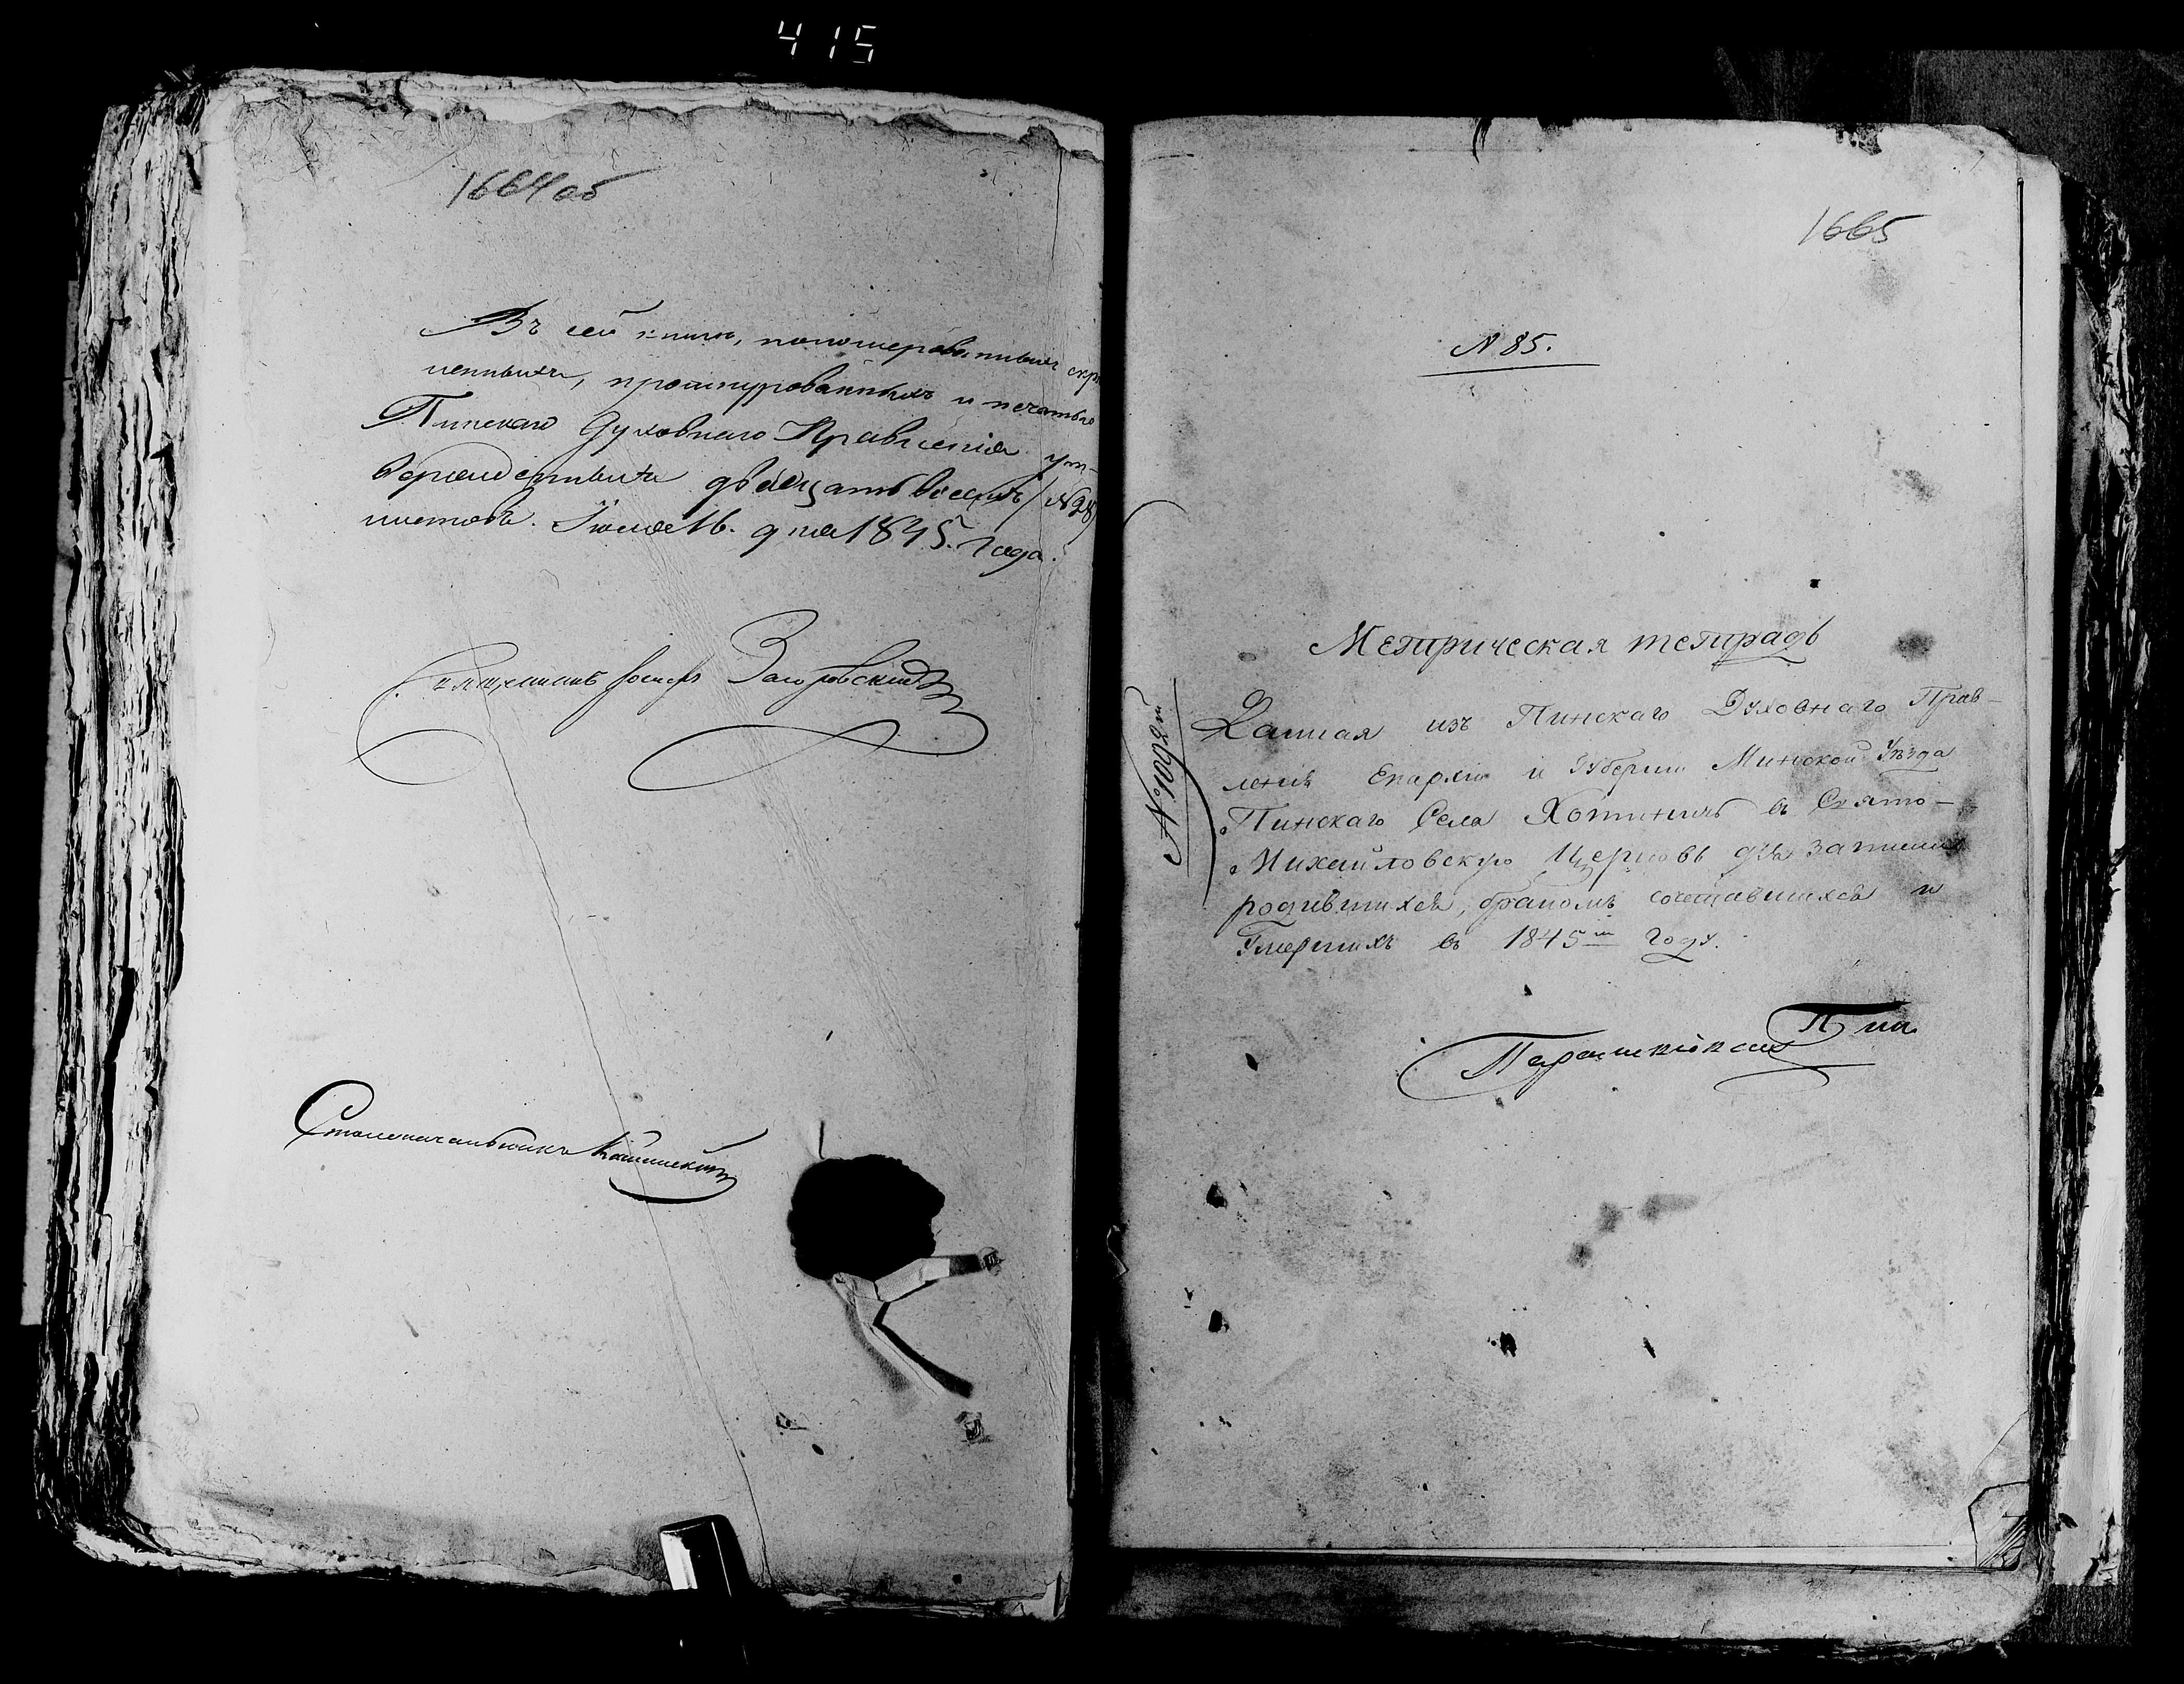 415
1664об
Въ сей книгѣ, пономерованныхъ скрѣ
пленныхъ, прошнурованныхъ и печатью
Пинскаго Духовнаго Правленія ут-
вержденныхъ двадцать восемь /№28/
листовъ. Іюля 16. дня 1845. Года.
Священникъ Іосифъ Загоровскій
Столоначальникъ
1665
N 85.
Метрическая тетрадь
№1092й
Данная изъ Пинскаго Духовнаго Прав-
ленія Епархіи и Губерніи Минской Уѣзда
Пинскаго Села Хотиничь въ Свято-
Михайловскую Церковь для записки
родившихся, бракомъ сочетавшихся и
Умершихъ въ 1845м Году.